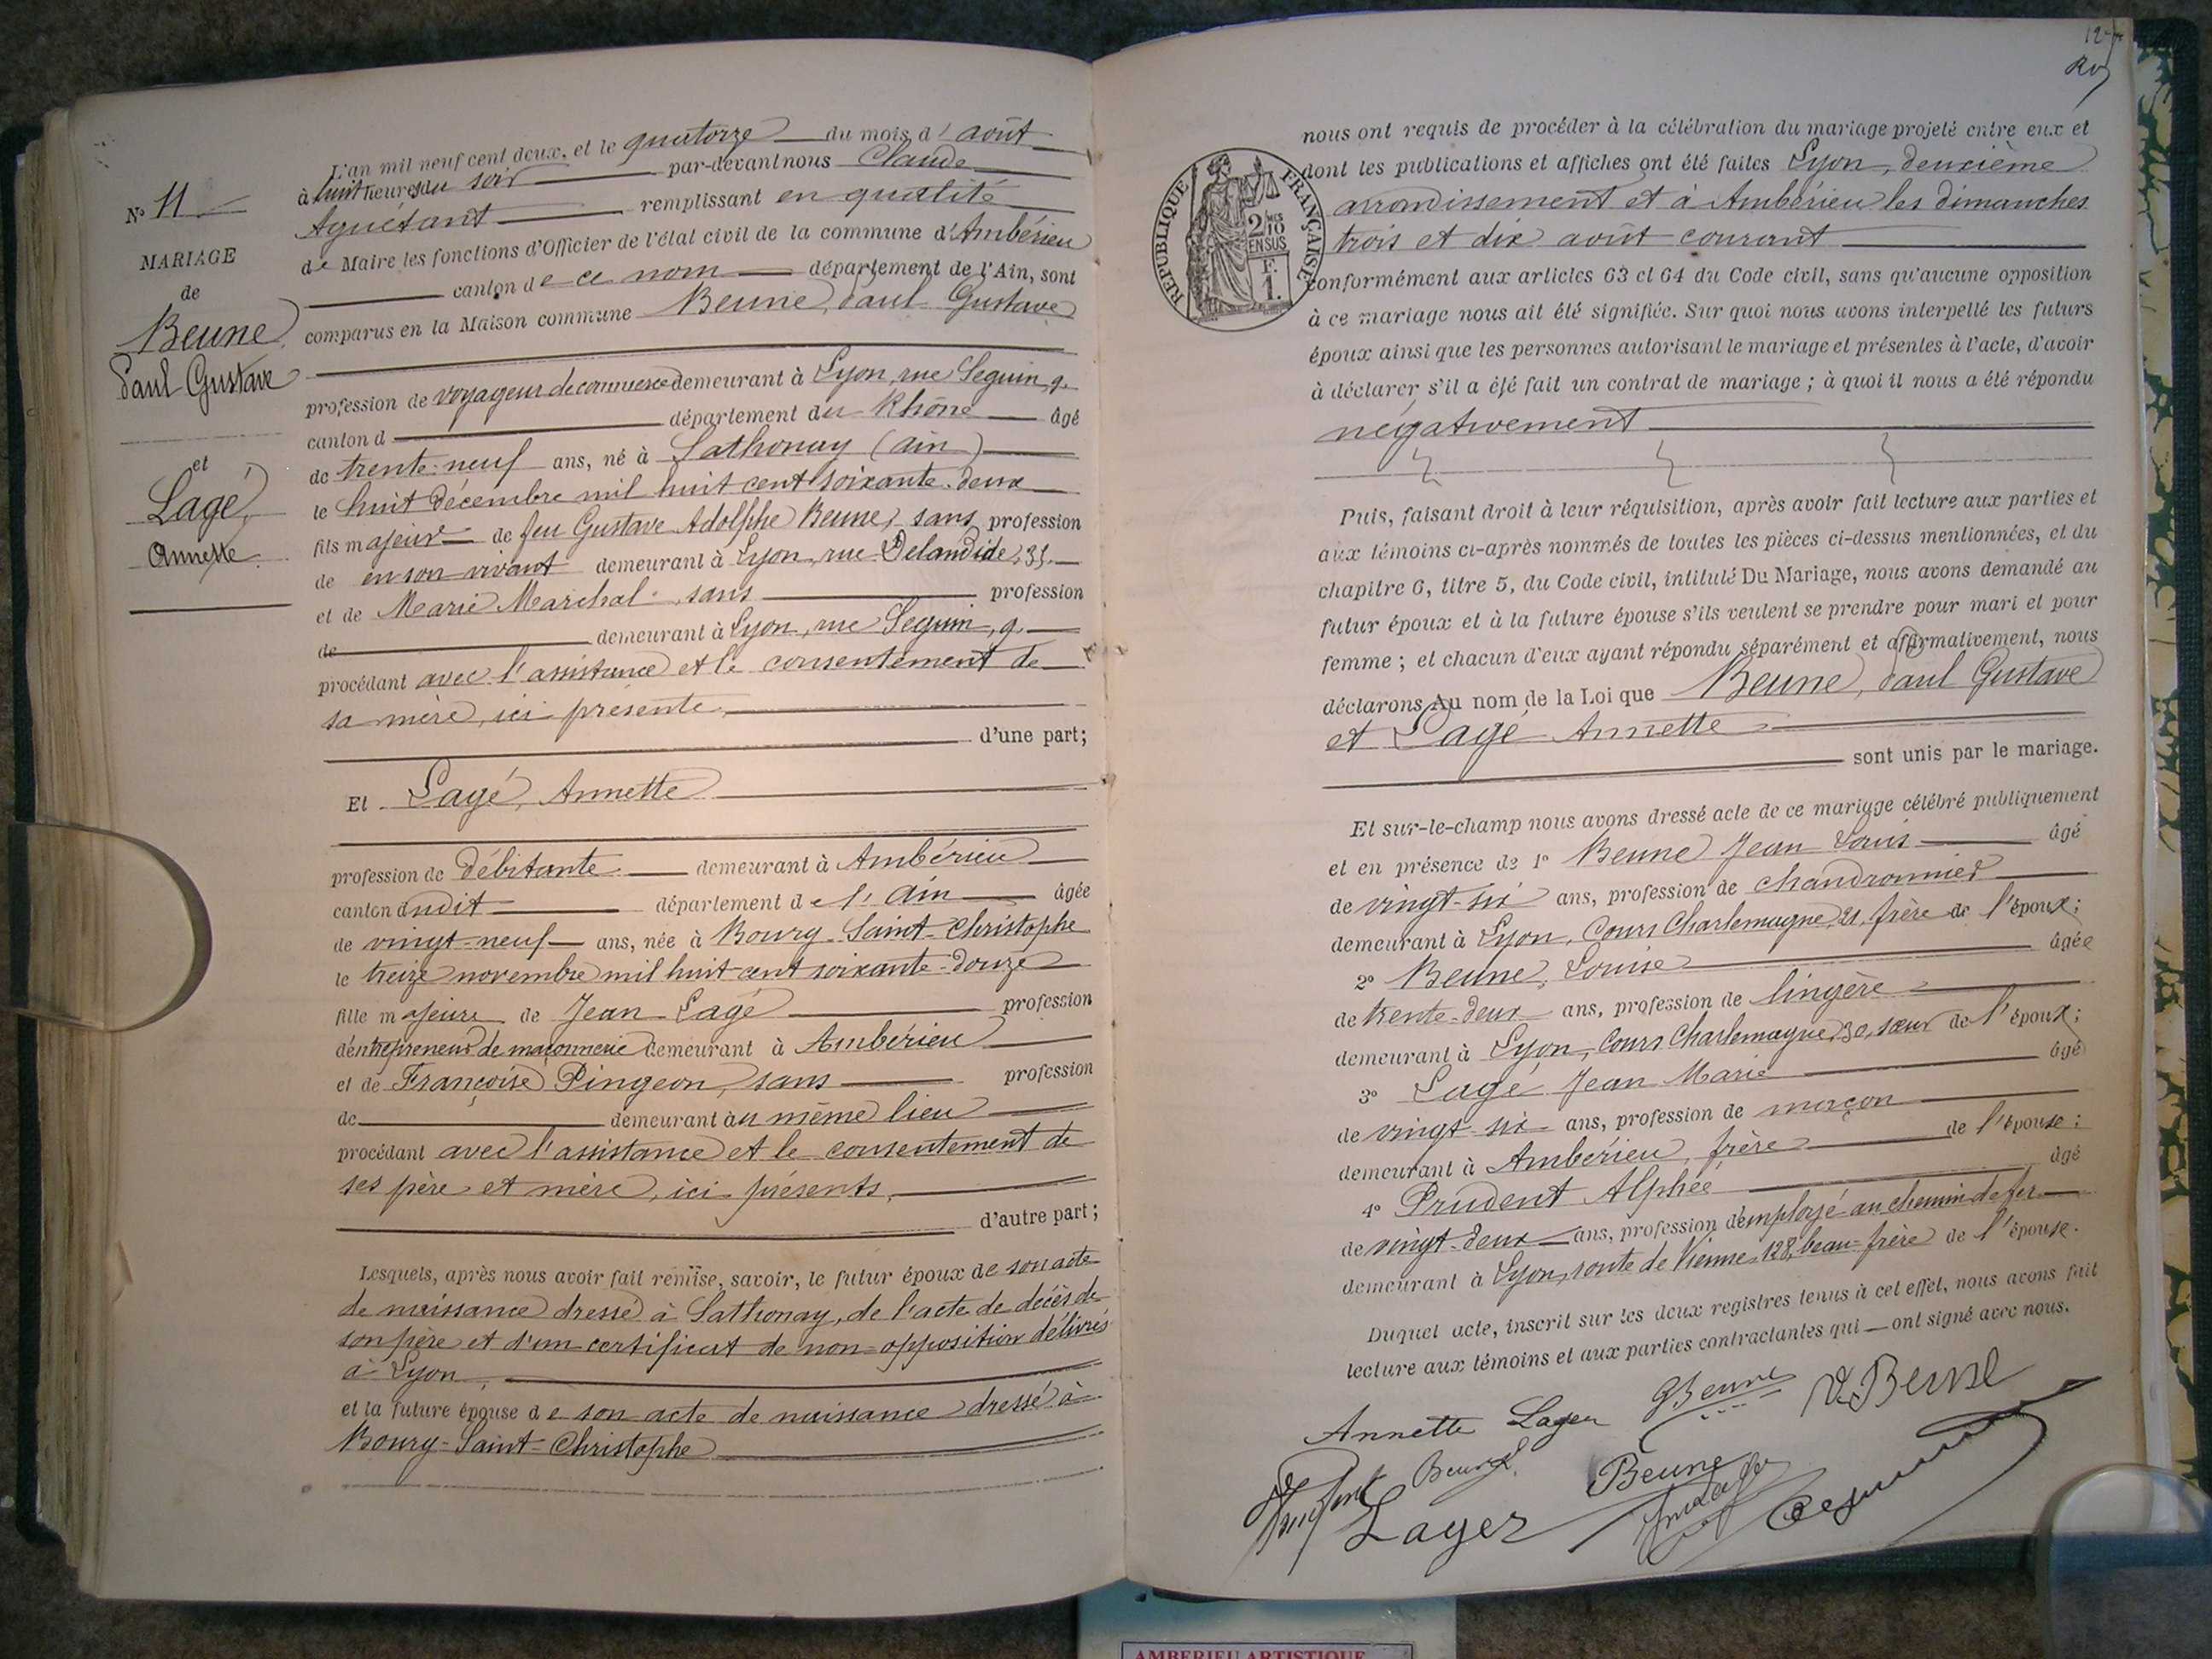 N° 11
MARIAGE
de
Beune
Paul Gustave
et
Lagé,
Annette
L'an mil neuf cent deux, et le quatorze du mois d'août
à huit heures du soir par-devant nous Claude
Aguétant remplissant en qualité
de Maire les fonctions d'Officier de l'état civil de la commune d'Ambérieu
canton de ce nom département de l'Ain, sont
comparus en la Maison commune Beune, Paul Gustave
profession de voyageur de commerce demeurant à Lyon, rue Seguin, 9.
canton d département du Rhône âgé
de trente-neuf ans, né à Sathonay (ain)
le huit décembre mil huit cent soixante-deux
fils majeur de feu Gustave Adolphe Beune, sans profession
de en son vivant demeurant à Lyon, rue Delandide, 31.
et de Marie Marchal, sans profession
de demeurant à Lyon, rue Seguin, 9.
procédant avec l'assistance et le consentement de
sa mère, ici présente,
d'une part;
Et Lagé, Annette
profession de débitante demeurant à Ambérieu
canton dudit département de l'Ain âgée
de vingt-neuf ans, née à Bourg-Saint-Christophe
le treize novembre mil huit cent soixante-douze
fille majeure de Jean Lagé profession
d'entrepreneur de maçonnerie demeurant à Ambérieu
et de Françoise Pingeon, sans profession
de demeurant au même lieu
procédant avec l'assistance et le consentement de
ses père et mère, ici présents,
d'autre part;
Lesquels, après nous avoir fait remise, savoir, le futur époux de son acte
de naissance dressé à Sathonay, de l'acte de décès de
son père et d'un certificat de non-opposition délivrés
à Lyon,
et la future épouse de son acte de naissance dressé à
Bourg-Saint-Christophe
RÉPUBLIQUE FRANÇAISE
2/10
EN SUS
F.
1.
nous ont requis de procéder à la célébration du mariage projeté entre eux et
dont les publications et affiches ont été faites Lyon, deuxième
arrondissement et à Ambérieu les dimanches
trois et dix août courant
conformément aux articles 63 et 64 du Code civil, sans qu'aucune opposition
à ce mariage nous ait été signifiée. Sur quoi nous avons interpellé les futurs
époux ainsi que les personnes autorisant le mariage et présentes à l'acte, d'avoir
à déclarer s'il a été fait un contrat de mariage; à quoi il nous a été répondu
négativement
Puis, faisant droit à leur réquisition, après avoir fait lecture aux parties et
aux témoins ci-après nommés de toutes les pièces ci-dessus mentionnées, et du
chapitre 6, titre 5, du Code civil, intitulé Du Mariage, nous avons demandé au
futur époux et à la future épouse s'ils veulent se prendre pour mari et pour
femme; et chacun d'eux ayant répondu séparément et affirmativement, nous
déclarons Au nom de la Loi que Beune, Paul Gustave
et Lagé Annette
sont unis par le mariage.
Et sur-le-champ nous avons dressé acte de ce mariage célébré publiquement
et en présence de 1° Beune Jean Louis âgé
de vingt-six ans, profession de chaudronnier
demeurant à Lyon, Cours Charlemagne, 21, frère de l'époux;
2° Beune, Louise âgée
de trente-deux ans, profession de lingère
demeurant à Lyon, Cours Charlemagne, 30, sœur de l'époux;
3° Lagé Jean Marie âgé
de vingt-six ans, profession de maçon
demeurant à Ambérieu, frère de l'épouse;
4° Prudent Alphée âgé
de vingt-deux ans, profession d'employé au chemin de fer
demeurant à Lyon, route de Vienne, 128, beau-frère de l'épouse.
Duquel acte, inscrit sur les deux registres tenus à cet effet, nous avons fait
lecture aux témoins et aux parties contractantes qui ont signé avec nous.
Annette Lager GBeune Beune
Beune L. Beune
Lager
AMBERIEU ARTISTIQUE